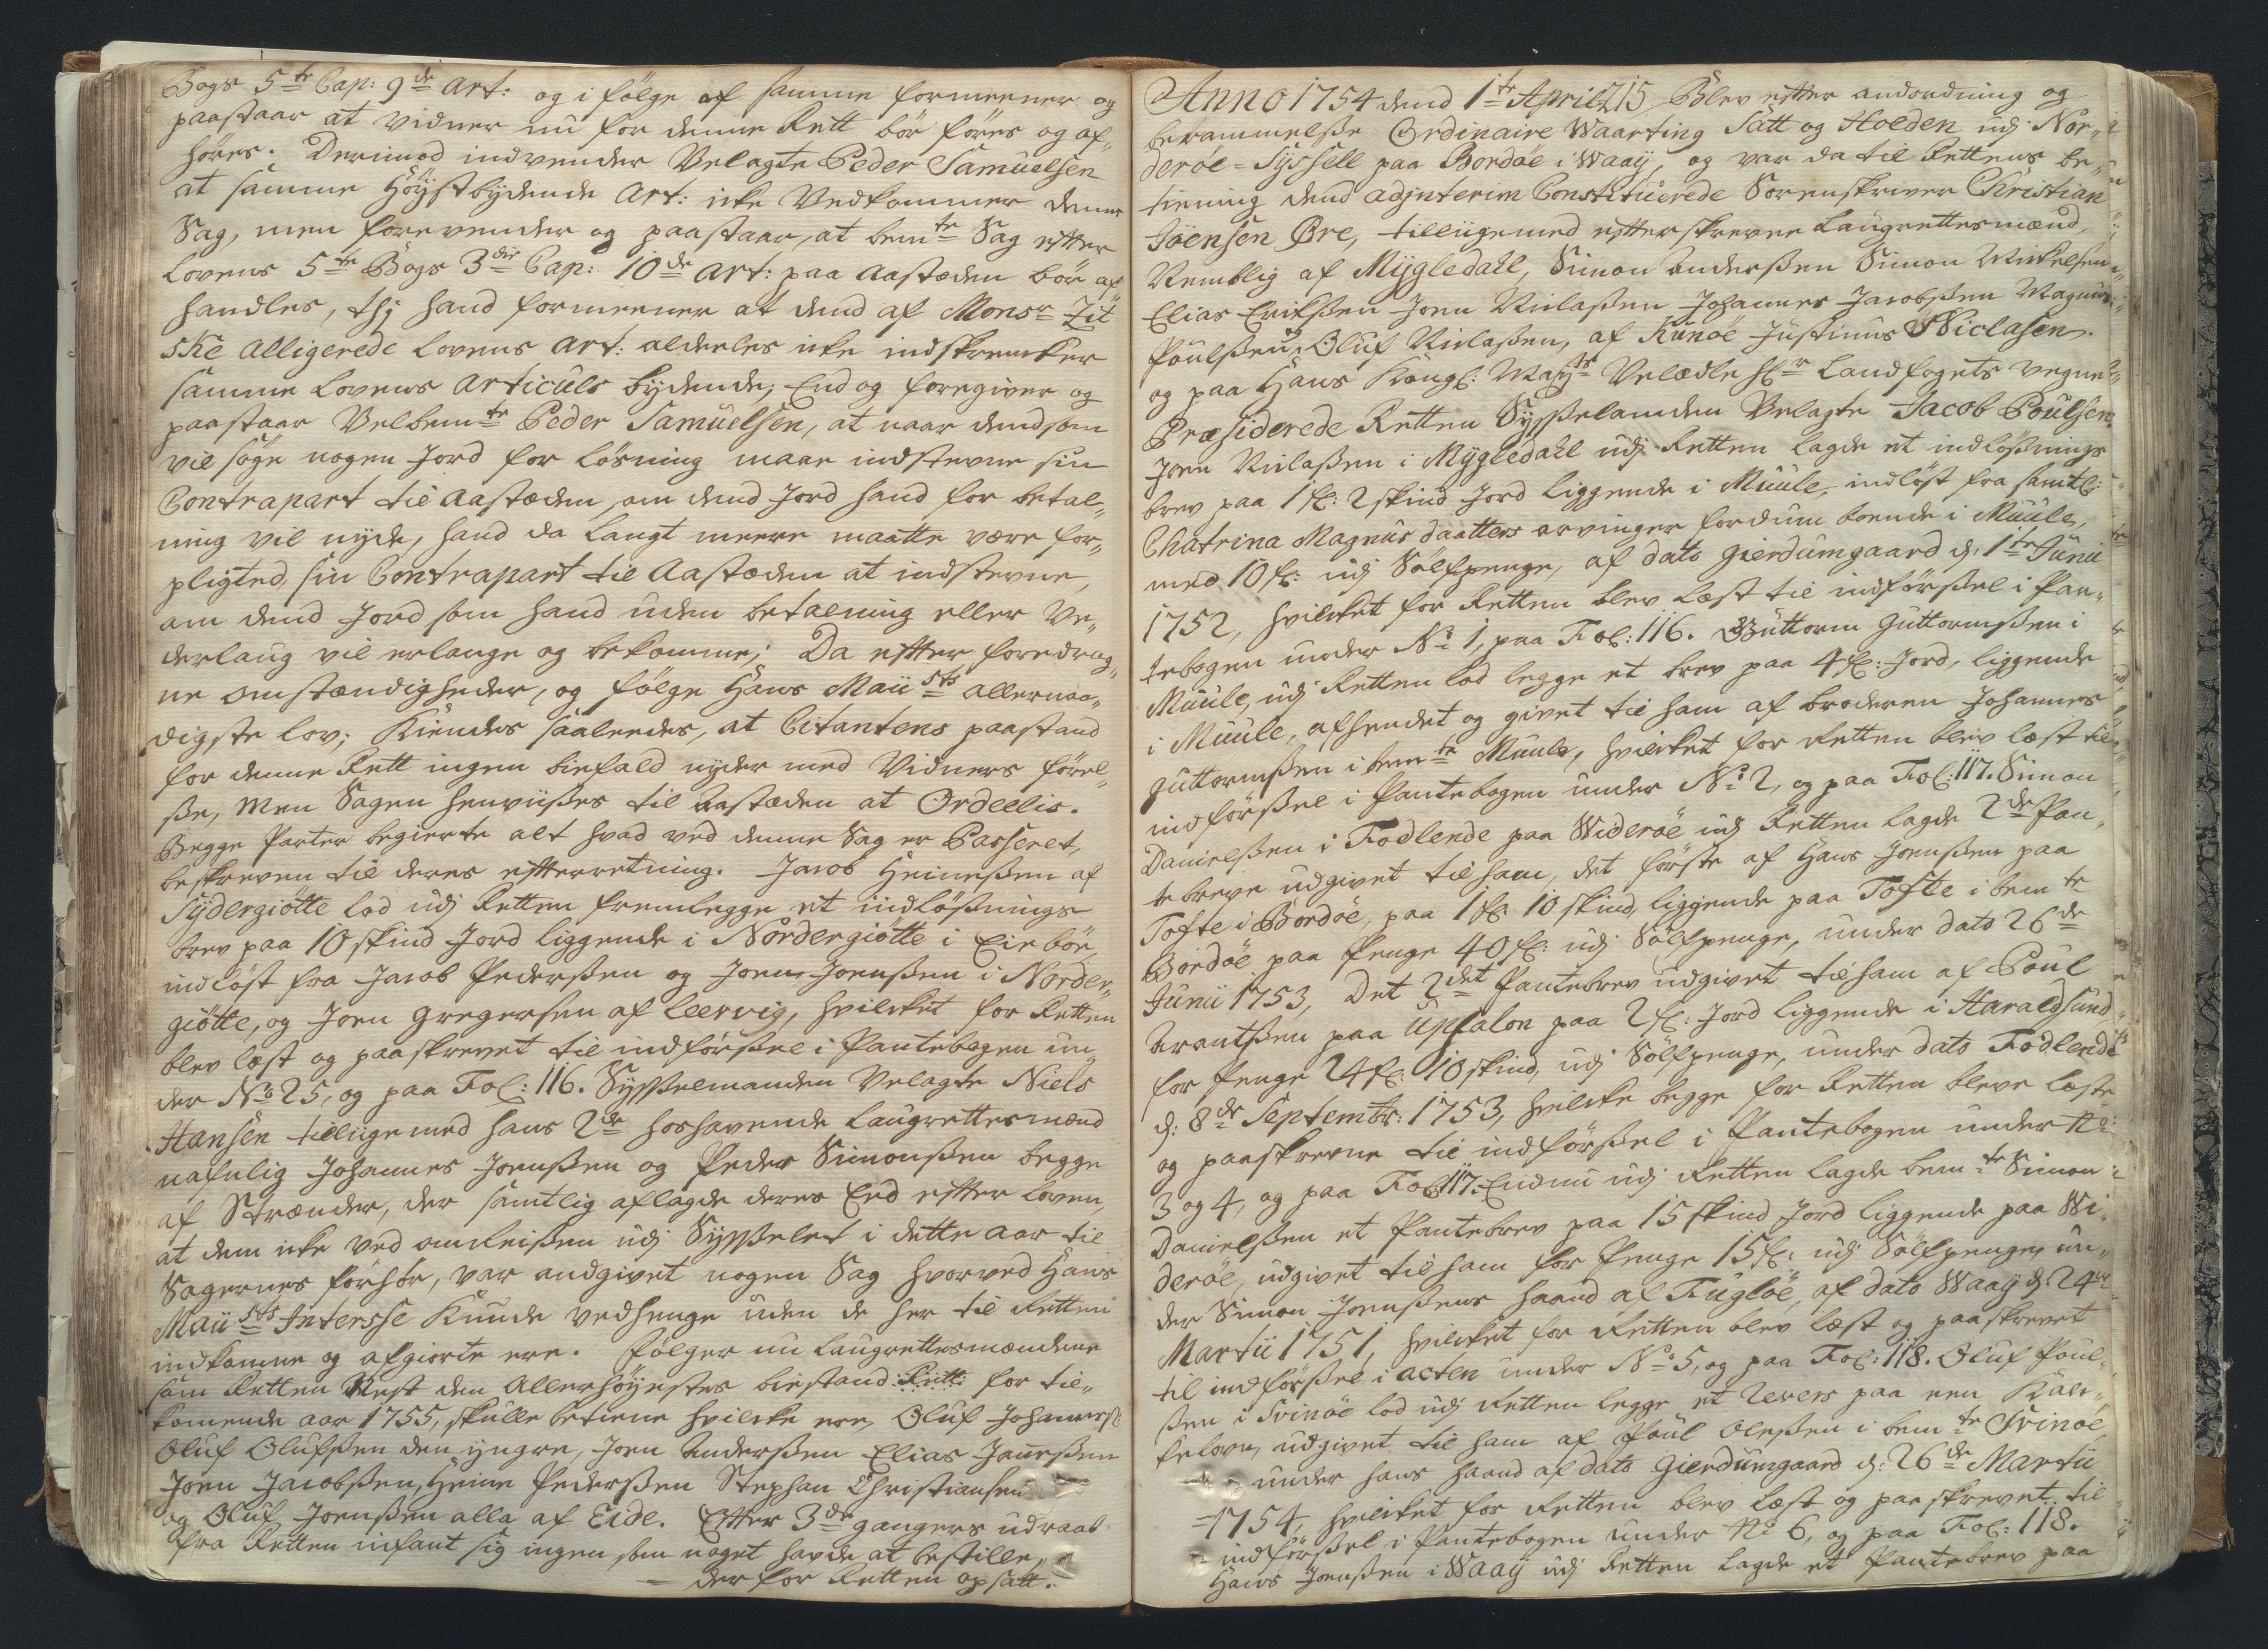 Bogs 5te Cap: 9de Art: og i fölge af samme formeener og
paastaar at vidner nu for denne Rett bör föres og af„
höres. Derimod indvender Velagte Peder Samuelsen
at samme Höystbydende Art: icke Vedkommer denne
Sag, men forevender og paastaar, at bemte Sag efter
Lovens 5te Bogs 3die Cap: 10de Art: paa Aastæden bör af„
handles, thj hand formeener at dend af Monsr Zit
ske Alligerede Lovens Art: alderles icke indskrencker
samme Lovens Articuls bydende; End og foregiver og
paastaar Velbemte Peder Samuelsen, at naar dend som
vil söge nogen Jord for lösning maae indstevne sin
Contrapart til Aastæden, om dend Jord hand for betal„
ning vil nyde, hand da langt meere maatte være for„
pligted, sin Contrapart til Aastæden at indstevne,
om dend Jord som hand uden betalning eller Ve„
derlaug vil erlange og bekomme; Da efter foredrag„
ne omstændigheder, og fölge Hans Maiists allernaa„
digste lov; Kiendes saaleedes, at Citantens paastand
for denne Rett ingen biefald nyder med Vidners förel„
ße, Men Sagen henviißes til Aastæden at Ordeelis.
Begge Parter begierte alt hvad ved denne Sag er Passeret,
beskreven til deres efterretning. Jacob Heineßen af
Sydergiötte lod udj Retten fremlegge et indlößnings
brev paa 10 skind Jord liggende i Nordergiötte i Eirbör
indlöst fra Jacob Pederßen og Joen Joenßen i Norder„
giötte, og Joen Gregersen af Leervig, hvilcket for Retten
blev læst og paaskrevet til indförßel i Pantebogen un„
der No 25, og paa Fol: 116. Sysselmanden Velagte Niels
Hansen tilligemed hans 2de hoshavende Laugrettesmænd
nafnlig Johannes Joenßen og Peder Simonßen begge
af Strænder, der samtlig aflagde deres Eed efter loven,
at dem icke ved omreißen udj Sysselet i dette aar til
Sagernes forhör, var andgivet nogen Sag hvorved Hans
Maiists Interesse Kunde vedhenge uden de her til Retten
indkomne og afgiorte ere. Fölger nu Laugrettesmændene
som Retten Nest den Allerhöyestes biestand for til„
komende aar 1755, skulle betiene hvilcke ere, Oluf Johannesß:
Oluf Olufsßen den yngre, Joen Anderßen Elias Janeßen
Joen Jacobßen, Heine Pederßen Stephan Christiansen
og Oluf Joenßen alla af Eide. Efter 3de ganges udraab
fra Retten infant sig ingen som noget havde at bestille,
der for Retten opsatt.
Anno 1754 dend 1te April 215 Blev efter anordning og
berammelße Ordinaire Waarting Satt og Holden udj Nor„
deröe-Syssell paa Bordöe i Waaÿ, og var da til Rettens be„
tiening dend adjnterim Constituerede Sorenskriver Christian
Jöensen Öre, tilligemed efterskrevne Laugrettesmænd,
Nemblig af Mygledahl, Simon Anderßen Simon Mickelsen
Elias Erikßen Joen Niclaßen Johannes Jacobßen Magnus
Poulßen, Oluf Niclaßen, af Kunöe Justinus Niclasen.
og paa Hans Kongl: Mayts Velædle Hr Landfogets vegne
Præsiderede Retten Sysselmanden Velagte Jacob Poulsen.
Joen Niclaßen i Mygledahl udj Retten lagde et indlößnings
brev paa 1 fl: 2 skind Jord liggende i Muule, indlöst fra samtl:
Chatrina Magnus daatters arvinger fordum boende i Muule,
med 10 fl: udj Sölfpenge, af dato Gierdumgaard d: 1te Junii
1752, hvilcket for Retten blev læst til indförßel i Pan„
tebogen under No 1, paa Fol: 116. Guttorm Guttormßen i
Muule, udj Retten lod legge et brev paa 4 fl: Jord, liggende
i Muule, afhendet og givet til ham af broderen Johannes
Guttormßen i bemte Muule, hvilcket for Retten blev læst til
indförßel i Pantebogen under No 2, og paa Fol: 117. Simon
Danielßen i Fodlende paa Wideröe udj Retten lagde 2de Pan„
tebreve udgivet til ham, det förste af Hans Joenßen paa
Tofte i Bordöe, paa 1 fl: 10 skind, liggende paa Tofte i bemte
Bordöe paa Penge 40 fl: udj Sölfpenge, under dato 26de
Junii 1753, Det 2det Pantebrev udgivet til ham af Poul
Arantßen paa Upsalon paa 2 fl: Jord liggende i Haraldsund,
for Penge 24 fl: 10 skind, udj Sölfpenge, under dato Fodlende
d: 8de Septembr: 1753, hvilcke begge for Retten bleve læste
og paaskrevne til indförßel i Pantebogen under No
3 og 4, og paa Fol: 117. Endnu udj Retten lagde bemte Simon
Danielßen et Pantebrev paa 15 skind Jord liggende paa Wi„
deröe, udgivet til ham for Penge 15 fl: udj Sölfpenge, un„
der Simon Joenßens haand af Fuglöe, af dato Waaÿ d: 24de
Martii 1751, hvilcket for Retten blev læst og paaskrevet
til indförßel i acten under No 5, og paa Fol: 118. Oluf Poul„
ßen i Svinöe lod udj Retten legge et Revers paa een
udgivet til ham af Poul Oleßen i bemte Svinöe,
under hans haand af dato Gierdumgaard d: 26de Martii
1754, hvilcket for Retten blev læst og paaskrevet til
indförßel i Pantebogen under No 6, og paa Fol: 118.
Hans Joenßen i Waaÿ udj Retten lagde et Pantebrev paa